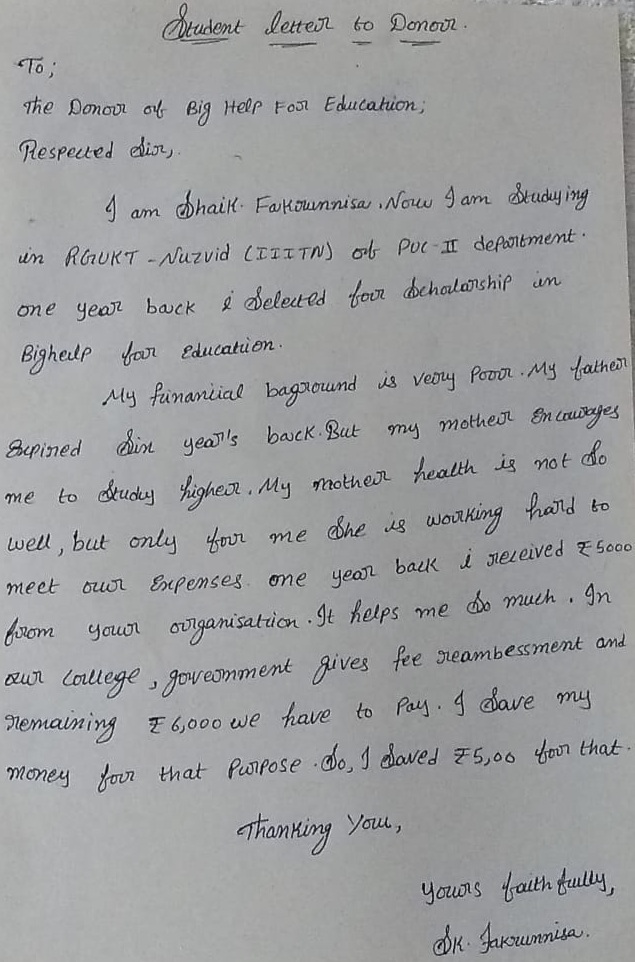 Student letter to Donor.
To;
The Donor of Big Help For Education;
Respected Sir,.
I am Shaik. Fakrunnisa. Now I am Studying
in RGUKT - Nuzvid (IIITN) of PUC-II department.
one year back i Selected for Scholarship in
Bighelp for education.
My finantial baground is very Poor. My father
Expired Six year's back. But my mother Encourages
me to study higher. My mother health is not So
well, but only for me She is working hard to
meet our Expenses. one year back i received ₹5000
from your organisation. It helps me So much. In
our college, goverment gives fee reambessment and
remaining ₹6,000 we have to Pay. I Save my
money for that Purpose. So, I Saved ₹5,00 for that.
Thanking You,
yours faithfully,
SK. Fakrunnisa.